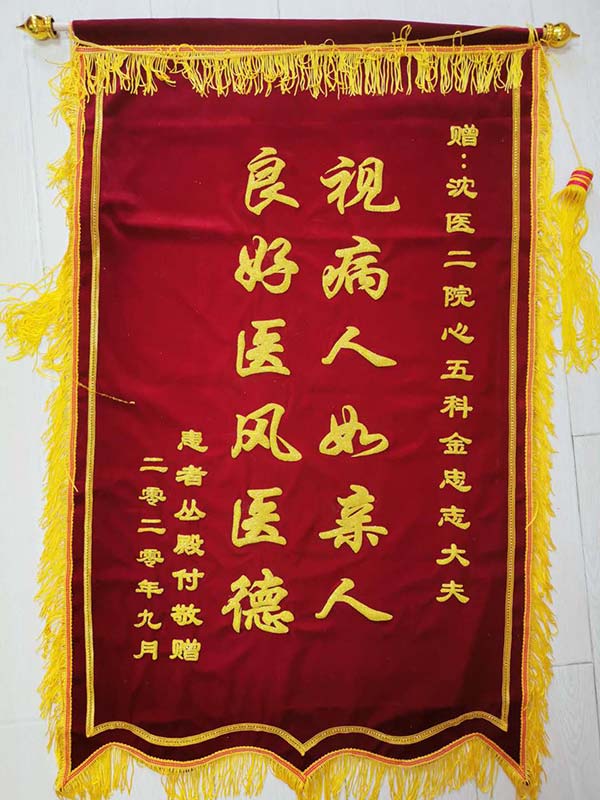 赠：沈医二院心五科金忠志大夫
视病人如亲人
良好医风医德
患者丛殿付敬赠
二零二零年九月